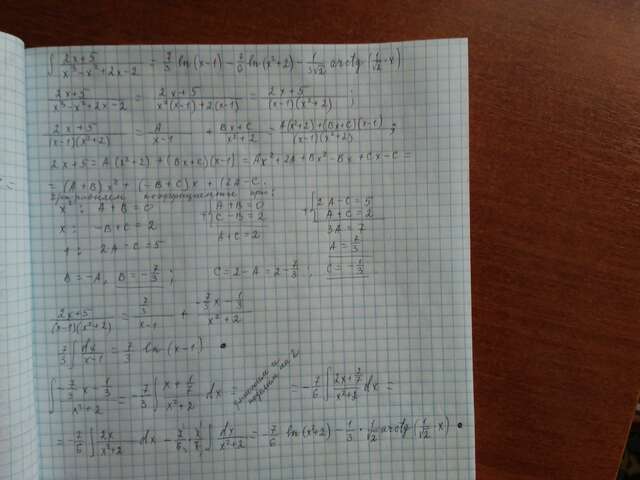 ∫ (2x+5)/(x³-x²+2x-2) = 7/3 ln(x-1) - 7/6 ln(x²+2) - 1/(3√2) arctg(1/√2 · x)
(2x+5)/(x³-x²+2x-2) = (2x+5)/(x²(x-1)+2(x-1)) = (2x+5)/((x-1)(x²+2)) ;
(2x+5)/((x-1)(x²+2)) = A/(x-1) + (Bx+C)/(x²+2) = (A(x²+2)+(Bx+C)(x-1))/((x-1)(x²+2)) ;
2x+5 = A(x²+2) + (Bx+C)(x-1) = Ax²+2A+Bx²-Bx+Cx-C =
= (A+B)x² + (-B+C)x + (2A-C.
коэффициенты при:
x²: A+B=0
x: -B+C=2
1: 2A=C=5
A+B=0
C-B=2
A+C=2
2A-C=5
A+C=2
3A=7
A=7/3
B=-A, B=-7/3 ; C=2-A=2-7/3, C=-1/3
(2x+5)/((x-1)(x²+2)) = (7/3)/(x-1) + (-7/3x-1/3)/(x²+2)
7/3 ∫ dx/(x-1) = 7/3 ln(x-1) •
∫ (-7/3x-1/3)/(x²+2) = -7/3 ∫ (x+1/7)/(x²+2) dx = умножим и поделим на 2 = -7/6 ∫ (2x+2/7)/(x²+2) dx =
= -7/6 ∫ 2x/(x²+2) dx - 7/6 · 2/7 ∫ dx/(x²+2) = -7/6 ln(x²+2) - 1/3 · 1/√2 arctg(1/√2 · x) •